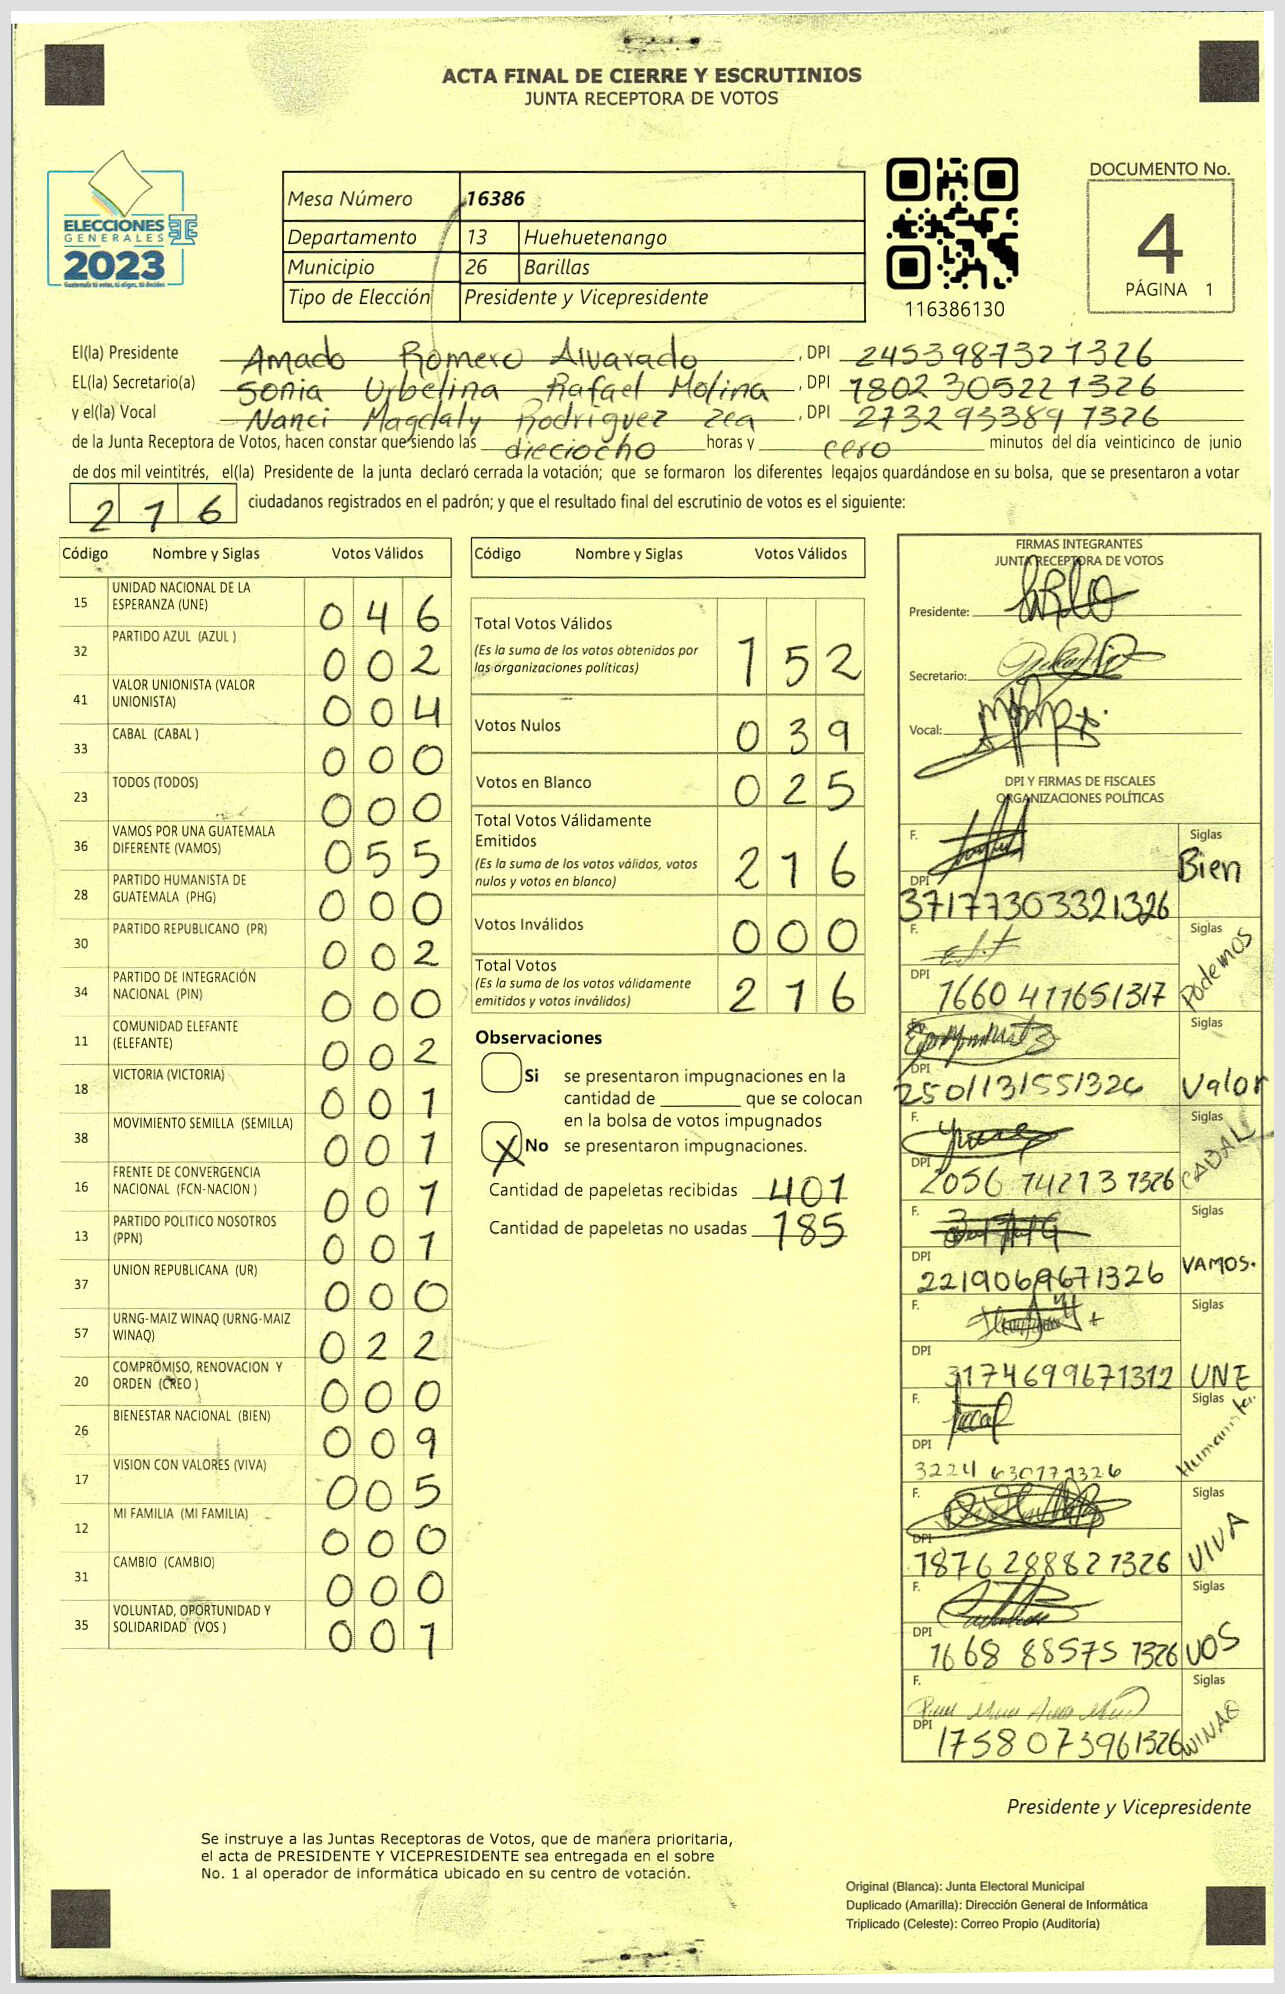 ACTA FINAL DE CIERRE Y ESCRUTINIOS
JUNTA RECEPTORA DE VOTOS
ELECCIONES
GENERALES
2023
Mesa Número 16386
Departamento 13 Huehuetenango
Municipio 26 Barillas
Tipo de Elección Presidente y Vicepresidente
116386130
DOCUMENTO No.
4
PÁGINA 1
El(la) Presidente Amado Romero Alvarado, DPI 2453987321326
EL(la) Secretario(a) Sonia Urbelina Rafael Molina, DPI 1802305221326
y el(la) Vocal Nanci Magdaly Rodriguez Zea, DPI 2732933891326
de la Junta Receptora de Votos, hacen constar que siendo las dieciocho horas y cero minutos del día veinticinco de junio
de dos mil veintitrés, el(la) Presidente de la junta declaró cerrada la votación; que se formaron los diferentes legajos guardándose en su bolsa, que se presentaron a votar
216 ciudadanos registrados en el padrón; y que el resultado final del escrutinio de votos es el siguiente:
Código Nombre y Siglas Votos Válidos
15 UNIDAD NACIONAL DE LA ESPERANZA (UNE) 046
32 PARTIDO AZUL (AZUL ) 002
41 VALOR UNIONISTA (VALOR UNIONISTA) 004
33 CABAL (CABAL ) 000
23 TODOS (TODOS) 000
36 VAMOS POR UNA GUATEMALA DIFERENTE (VAMOS) 055
28 PARTIDO HUMANISTA DE GUATEMALA (PHG) 000
30 PARTIDO REPUBLICANO (PR) 002
34 PARTIDO DE INTEGRACIÓN NACIONAL (PIN) 000
11 COMUNIDAD ELEFANTE (ELEFANTE) 002
18 VICTORIA (VICTORIA) 001
38 MOVIMIENTO SEMILLA (SEMILLA) 001
16 FRENTE DE CONVERGENCIA NACIONAL (FCN-NACION ) 001
13 PARTIDO POLITICO NOSOTROS (PPN) 001
37 UNION REPUBLICANA (UR) 000
57 URNG-MAIZ WINAQ (URNG-MAIZ WINAQ) 022
20 COMPROMISO, RENOVACION Y ORDEN (CREO ) 000
26 BIENESTAR NACIONAL (BIEN) 009
17 VISION CON VALORES (VIVA) 005
12 MI FAMILIA (MI FAMILIA) 000
31 CAMBIO (CAMBIO) 000
35 VOLUNTAD, OPORTUNIDAD Y SOLIDARIDAD (VOS ) 001
Código Nombre y Siglas Votos Válidos
Total Votos Válidos 152
(Es la suma de los votos obtenidos por
las organizaciones políticas)
Votos Nulos 039
Votos en Blanco 025
Total Votos Válidamente
Emitidos 216
(Es la suma de los votos válidos, votos
nulos y votos en blanco)
Votos Inválidos 000
Total Votos 216
(Es la suma de los votos válidamente
emitidos y votos inválidos)
Observaciones
Si se presentaron impugnaciones en la
cantidad de ________ que se colocan
en la bolsa de votos impugnados
X No se presentaron impugnaciones.
Cantidad de papeletas recibidas 401
Cantidad de papeletas no usadas 185
FIRMAS INTEGRANTES
JUNTA RECEPTORA DE VOTOS
Presidente:
Secretario:
Vocal:
DPI Y FIRMAS DE FISCALES
ORGANIZACIONES POLÍTICAS
F. Siglas Bien
DPI 37177303321326
F. Siglas Podemos
DPI 1660411651317
F. Siglas Valor
DPI 2501131551326
F. Siglas CABAL
DPI 2056 74213 1326
F. Siglas VAMOS.
DPI 2219069671326
F. Siglas UNE
DPI 3174699671312
F. Siglas Humanista
DPI 3224 630771326
F. Siglas VIVA
DPI 1876288821326
F. Siglas VOS
DPI 1668 88575 1326
F. Siglas WINAQ
DPI 1758073961326
Presidente y Vicepresidente
Se instruye a las Juntas Receptoras de Votos, que de manera prioritaria,
el acta de PRESIDENTE Y VICEPRESIDENTE sea entregada en el sobre
No. 1 al operador de informática ubicado en su centro de votación.
Original (Blanca): Junta Electoral Municipal
Duplicado (Amarilla): Dirección General de Informática
Triplicado (Celeste): Correo Propio (Auditoría)